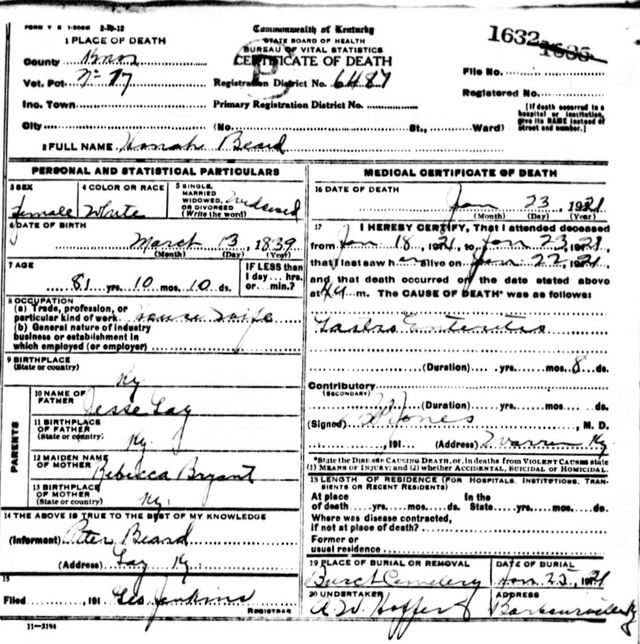 FORM V S 1-500M 2-20-12
Commonwealth of Kentucky
STATE BOARD OF HEALTH
BUREAU OF VITAL STATISTICS
CERTIFICATE OF DEATH
1632
1635
1 PLACE OF DEATH
County Knox
Vot. Pct. No 17
Registration District No. 6487
File No.
Inc. Town
Primary Registration District No.
Registered No.
City (No. St., Ward)
[If death occurred in a hospital or institution, give its NAME instead of street and number.]
2 FULL NAME Hannah Beard
PERSONAL AND STATISTICAL PARTICULARS
3 SEX Female
4 COLOR OR RACE White
5 SINGLE, MARRIED WIDOWED, OR DIVORCED (Write the word) Widowed
6 DATE OF BIRTH
March 13, 1839
(Month) (Day) (Year)
7 AGE
81 yrs. 10 mos. 10 ds.
IF LESS than 1 day... hrs. or... min.?
8 OCCUPATION
(a) Trade, profession, or particular kind of work House Wife
(b) General nature of industry
business or establishment in
which employed (or employer)
9 BIRTHPLACE
(State or country) Ky
PARENTS
10 NAME OF FATHER Jesse Lay
11 BIRTHPLACE OF FATHER (State or country) Ky.
12 MAIDEN NAME OF MOTHER Rebecca Bryant
13 BIRTHPLACE OF MOTHER (State or country) Ky.
14 THE ABOVE IS TRUE TO THE BEST OF MY KNOWLEDGE
(Informent) Peter Beard
(Address) Lay Ky.
15
Filed 191 Geo Jenkins
REGISTRAR
11-3184
MEDICAL CERTIFICATE OF DEATH
16 DATE OF DEATH
Jan 23, 1921
(Month) (Day) (Year)
17 I HEREBY CERTIFY, That I attended deceased
from Jan 18, 1921, to Jan 23, 1921
that I last saw her alive on Jan 22, 1921
and that death occurred on the date stated above
at m. The CAUSE OF DEATH* was as follows:
Gastro Enteritis
(Duration) yrs. mos. 8 ds.
Contributory
(SECONDARY)
(Duration) yrs. mos. ds.
(Signed) Jones, M. D.
, 191 (Address) Warren Ky
*State the DISEASE CAUSING DEATH, or, in deaths from VIOLENT CAUSES state
(1) MEANS OF INJURY; and (2) whether ACCIDENTAL, SUICIDAL or HOMICIDAL
18 LENGTH OF RESIDENCE (FOR HOSPITALS, INSTITUTIONS, TRANSIENTS OR RECENT RESIDENTS)
At place of death yrs. mos. ds. In the State yrs. mos. ds.
Where was disease contracted,
if not at place of death?
Former or
usual residence
19 PLACE OF BURIAL OR REMOVAL
Burch Cemetery
DATE OF BURIAL
Jan 25, 1921
20 UNDERTAKER
A W Hoffer
ADDRESS
Barbourville Ky